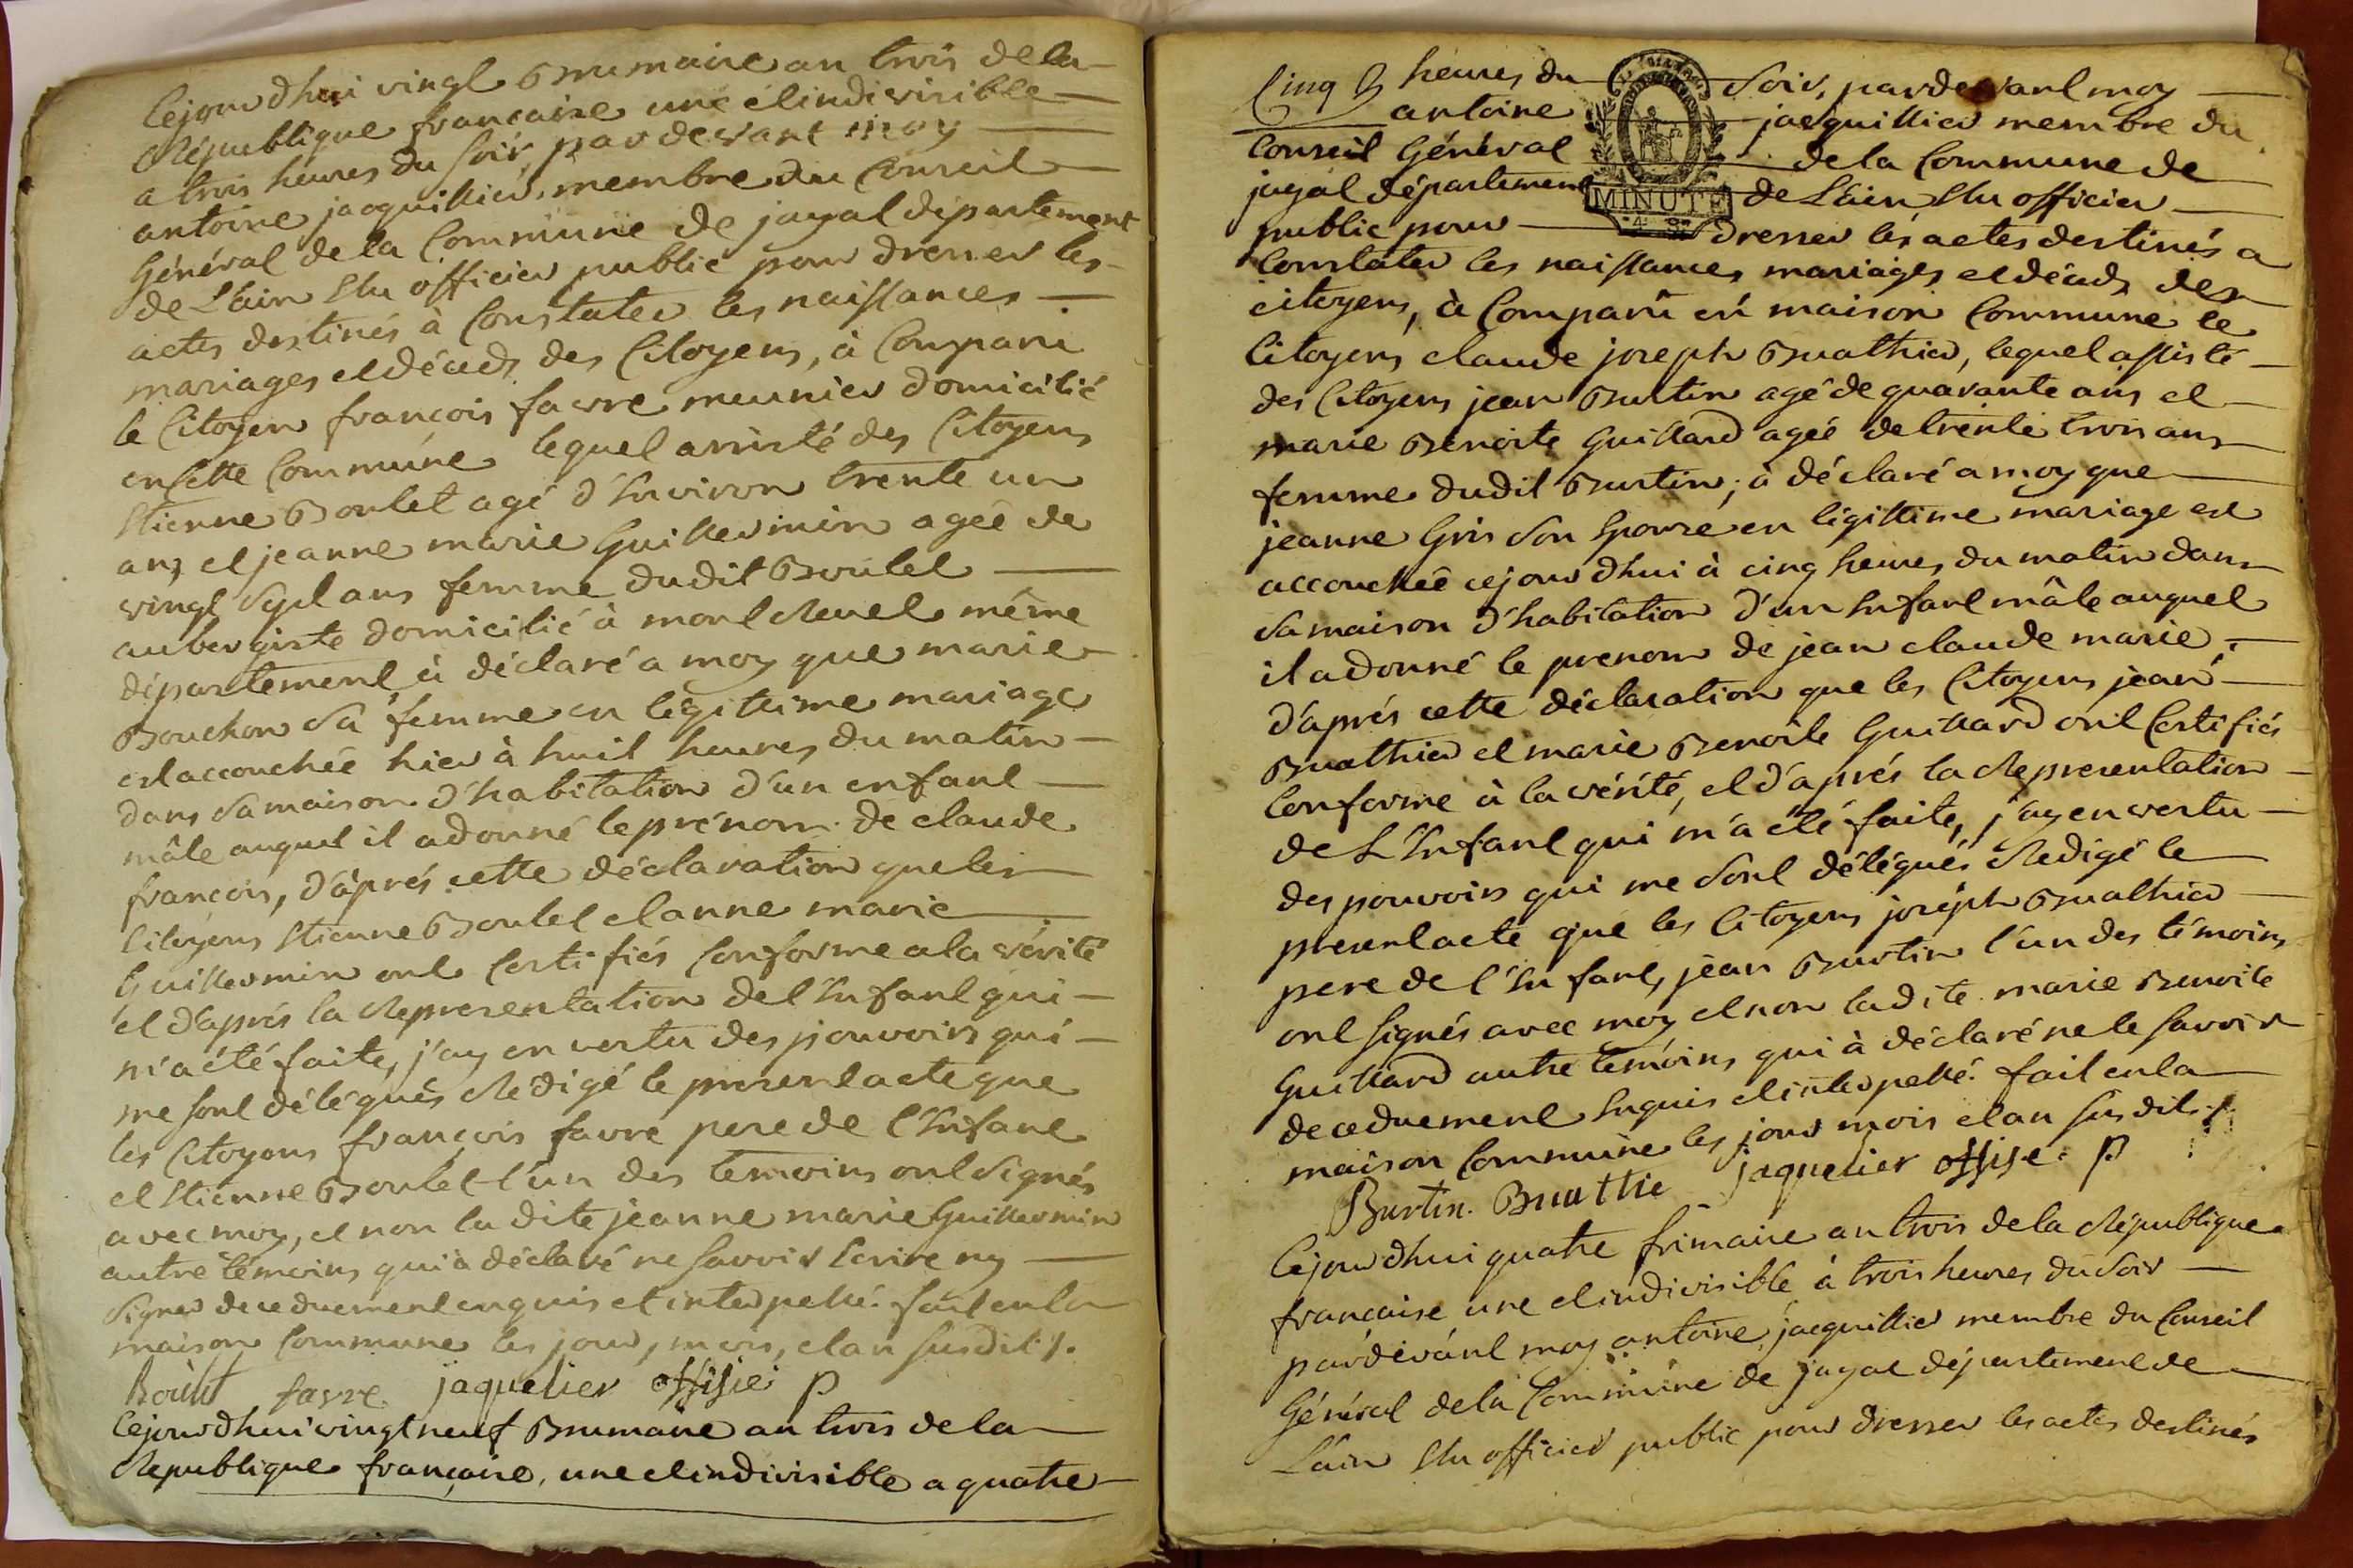 Cejourdhui vingt Brumaire an trois dela
République francaise une etindivisible
a trois heures du soir, pardevant moy
antoine jacquillier, membre du Conseil
Général de la Commune de jayat département
de L'ain Elu officier public pour dresser les
actes destinés à Constater les naissances
mariages et déceds des Citoyens, à Comparu
le Citoyen françois favre meunier domicilié
en Cette Commune lequel assisté des Citoyens
Etienne Boulet agé d'Environ trente un
ans et jeanne marie Guillermin ageé de
vingt Sept ans femme dudit Boulet
aubergiste domicilié à mont Revel même
département, à déclaré a moy que marie
Bouchon Sa femme en légittime mariage
est accouchée hier à huit heures du matin
dans Sa maison d'habitation d'un enfant
mâle auquel il adonné le prénom de claude
francois, d'àprés cette déclaration queles
Citoyens Etienne Boulet et anne marie
Guillermin ont Certifiés Conforme a la vérité
et d'aprés la Representation de l'Enfant qui
m'a été faite, j'ay en vertu des pouvoirs qui
me sont délégués Redigé le present acte que
les Citoyens françois favre pere de l'Enfant
et Etienne Boulet l'un des témoins ont Signés
avec moy, et non la dite jeanne marie Guillermin
autre témoins qui à déclaré ne Savoir Ecrire ny
Signer de ce duement enquis et interpellé. fait en la
maison Commune les jour, mois, et an susdit ./.
Boulet favre jaquelier offisie: p
Cejourdhui vingt neuf Brumaire an trois de la
Republique française, une et indivisible a quatre
Cinq heures du Soir, pardevant moy
antoine jacquillier membre du
Conseil Général de la Commune de
jayat département de L'ain Elu officier
public pour dresser les actes destinés a
MINUTE
Constater les naissances mariages et décéds des
citoyens, à Comparu en maison Commune le
Citoyens claude joseph Buathier, lequel assisté
des Citoyens jean Burtin agé de quarante ans et
marie Benoite Guillard ageé de trente trois ans
femme dudit Burtin; à déclaré a moy que
jeanne Gris Son Epouse en légittime mariage est
accouchée cejour dhui à cinq heures du matin dans
Sa maison d'habitation d'un Enfant mâle auquel
il a donné le prenom de jean claude marie,
d'aprés cette déclaration que les Citoyens jean
Buathier et marie Benoite Guillard ont Certifiés
Conforme à la vérité, et d'aprés la Representation
de L'Enfant qui m'a été faite, j'ay en vertu
des pouvoirs qui me Sont délégués Redigé le
present acte que les Citoyens joséph Buathier
pere de l'Enfant, jean Burtin l'un des témoins
ont Signés avec moy et non ladite marie Benoite
Guillard autre témoins qui à déclaré ne le Savoir
de ce duement Enquis et interpellé. fait en la
maison Commune les jour mois et an susdit ./.
Burtin. Buathie jaquelier offise: p
Cejourdhui quatre frimaire an trois de la République
française une et indivisible à trois heures du Soir
pardevant moy antoine jacquillier membre du Conseil
Général de la Commune de jayat département de
L'ain Elu officier public pour dresser les actes destinés